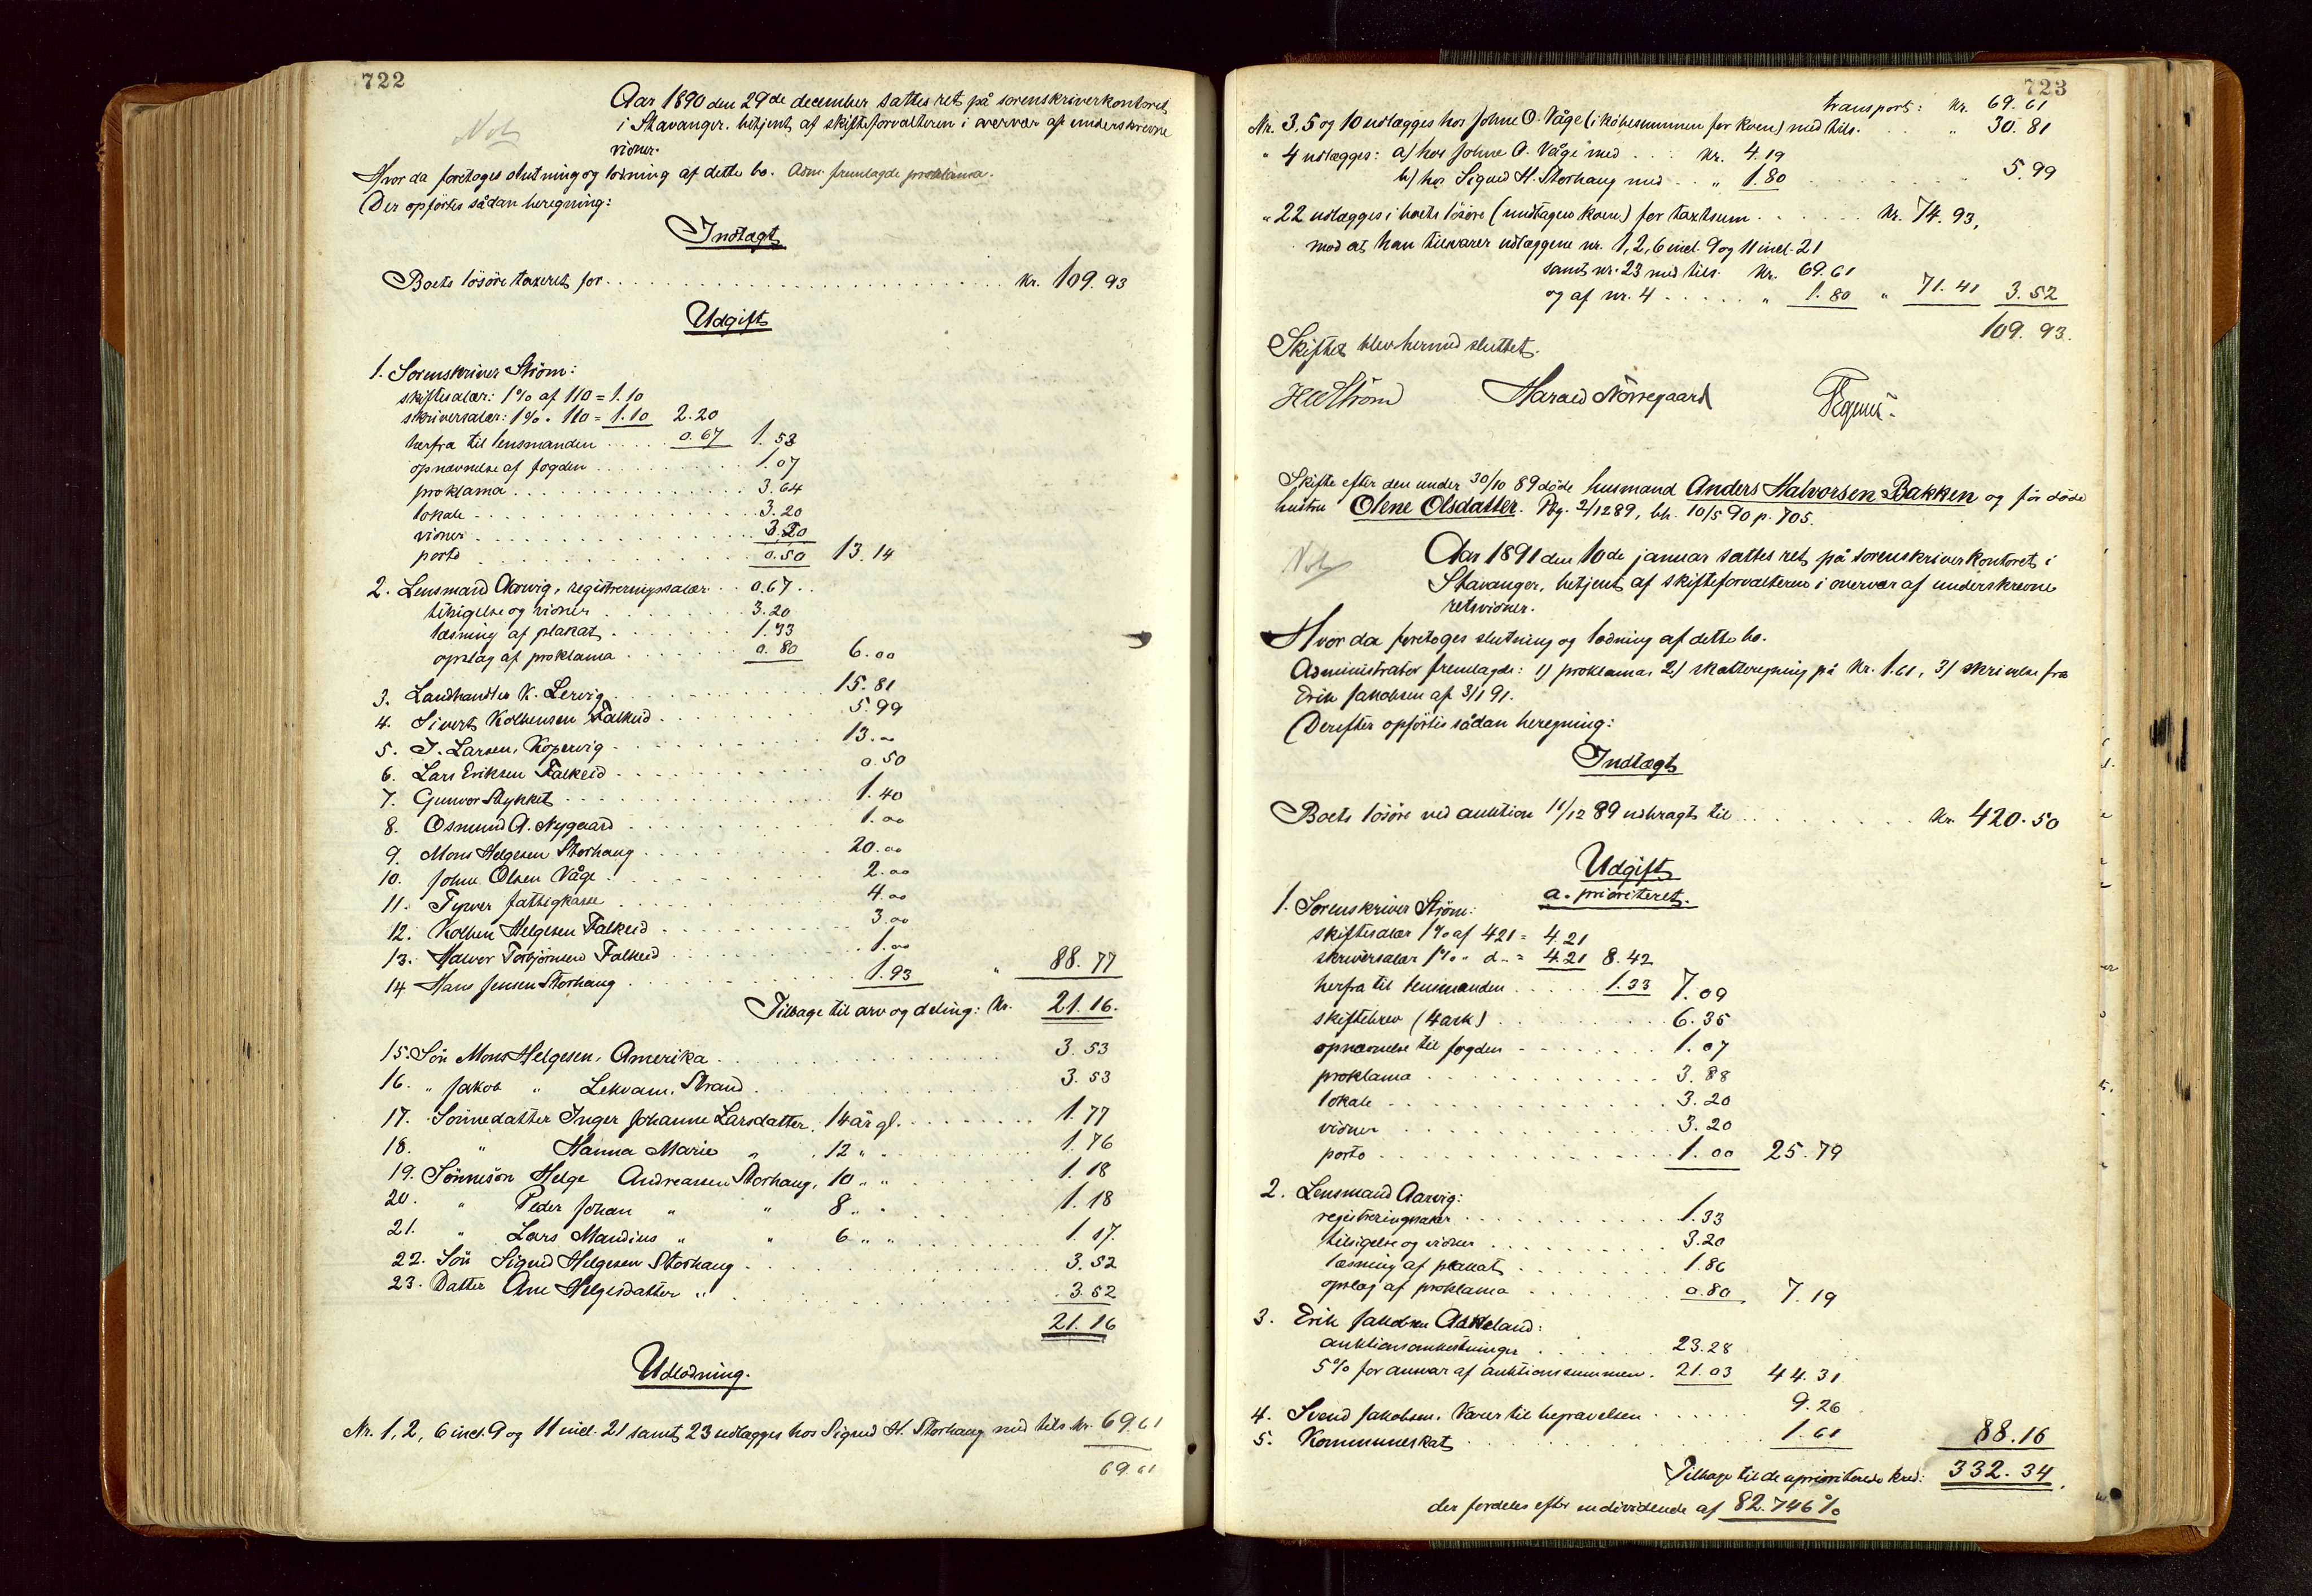 722
Aar 1890 den 29de december sattes ret på sorenskriverkontoret
i Stavanger, betjent af skifteforvalteren i overvær af underskrevne
vidner.
Not
Hvor da foretoges slutning og lodning af dette bo. Adm. fremlagde proklama.
Der opførtes sådan beregning:
Indtægt
Boets løsøre taxeret for . . . kr. 109.93
Udgift
1. Sorenskriver Strøm:
skiftesalær: 1% af 110 = 1.10
skriversalær: 1% " 110 = 1.10 2.20
herfra til lensmanden . . . 0.67 1.53
opnævnelse af fogden . . . 1.07
proklama . . . 3.64
lokale . . . 3.20
vidner . . . 3.20
porto . . . 0.50 13.14
2. Lensmand Aarvig, registreringssalær . . 0.67 . .
tilsigelse og vidner . . . 3.20
læsning af plakat . . . 1.33
opslag af proklama . . . 0.80 6.00
3. Landhandler K. Lervig . . . 15.81
4. Sivert Kolbensen Falkeid . . . 5.99
5. J. Larsen, Kopervig . . . 13.00
6. Lars Eriksen Falkeid . . . 0.50
7. Gunvor Stykket . . . 1.40
8. Osmund A. Nygaard . . . 1.00
9. Mons Helgesen Storhaug . . . 20.00
10. Johne Olsen Våge . . . 2.00
11. Tysvær fattigkasse . . . 4.00
12. Kolben Helgesen Falkeid . . . 3.00
13. Halvor Torbjörnsen Falkeid . . . 1.00
14 Hans Jensen Storhaug . . . 1.93 " 88.77
Tilbage til arv og deling: kr. 21.16.
15. Søn Mons Helgesen, Amerika . . . 3.53
16. " Jakob " Lekvam, Strand . . . 3.53
17. Sønnedatter Inger Johanne Larsdatter, 14 år gl. . . . 1.77
18. " Hanna Marie " , 12 " " . . . 1.76
19. Sønnesøn Helge Andreassen Storhaug, 10 " " . . . 1.18
20. " Peder Johan " " 8 " " . . . 1.18
21. " Lars Mandius " " 6 " " . . . 1.17.
22. Søn Sigurd Helgesen Storhaug . . . 3.52
23. Datter Ane Helgesdatter " . . . 3.52
21.16
Udlodning.
Nr. 1, 2, 6 incl. 9 og 11 incl. 21 samt 23 udlægges hos Sigurd H. Storhaug med tils. kr. 69.61
69.61
723
transport: kr. 69.61
Nr. 3, 5 og 10 udlægges hos Johne O. Våge (i købesummen for koen) med tils. . . " 30.81
" 4 udlægges: a) hos Johne O. Våge med . . . kr. 4.19
b) hos Sigurd H. Storhaug med . . " 1.80 . . . 5.99
" 22 udlægges i boets løsøre (undtagen koen) for taxtsum . . . kr. 74.93,
mod at han tilsvarer udlæggene nr. 1, 2, 6 incl. 9 og 11 incl. 21
samt nr. 23 med tils. kr. 69.61
og af nr. 4 . . . " 1.80 " 71.41 3.52
109.93.
Skiftet blev hermed sluttet.
Strøm Harald Nørregaard
Skifte efter den under 30/10 89 døde husmand Anders Halvorsen Bakken og før døde
hustru Olene Olsdatter. Rg. 2/12 89, bh. 10/5 90 p. 705.
Not
Aar 1891 den 10de januar sattes ret på sorenskriverkontoret i
Stavanger, betjent af skifteforvalteren i overvær af underskrevne
retsvidner.
Hvor da foretoges slutning og lodning af dette bo.
Administrator fremlagde: 1) proklama, 2) skatteregning på kr. 1.61, 3) skrivelse fra
Erik Jakobsen af 3/1 91.
Derefter opførtes sådan beregning:
Indtægt
Boets løsøre ved auktion 11/12 89 udbragt til . . . kr. 420.50
Udgift
a. prioriteret.
1. Sorenskriver Strøm:
skiftesalær 1% af 421 = 4.21
skriversalær 1% " d. = 4.21 8.42
herfra til lensmanden . . . 1.33 7.09
skiftebrev (4 ark) . . . 6.35
opnævnelse til fogden . . . 1.07
proklama . . . 3.88
lokale . . . 3.20
vidner . . . 3.20
porto . . . 1.00 25.79
2. Lensmand Aarvig:
registreringssalær . . . 1.33
tilsigelse og vidner . . . 3.20
læsning af plakat . . . 1.86
opslag af proklama . . . 0.80 7.19
3. Erik Jakobsen Askeland:
auktionsomkostninger . . . 23.28
5% for ansvar af auktionssummen . 21.03 44.31
4. Svend Jakobsen. Varer til begravelsen . . . 9.26
5. Kommuneskat . . . 1.61 88.16
Tilbage til de uprioriterede kred: 332.34.
der fordeles efter en dividende af 82.746%